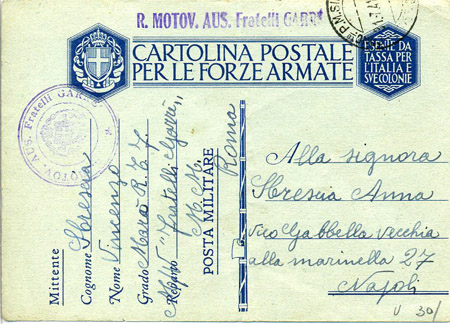 R. MOTOV. AUS. Fratelli GARRE
CARTOLINA POSTALE
PER LE FORZE ARMATE
ESENTE DA
TASSA PER
L'ITALIA E
SVE COLONIE
MOTOV. AUS. Fratelli GARRE
Mittente
Cognome Sbrescia
Nome Vincenzo
Grado Marò R. T. F.
Reparto "Fratelli Garrè"
POSTA MILITARE
Roma
Alla signora
Sbrescia Anna
Vico Gabbella vecchia
alla marinella 27
Napoli
V 30/